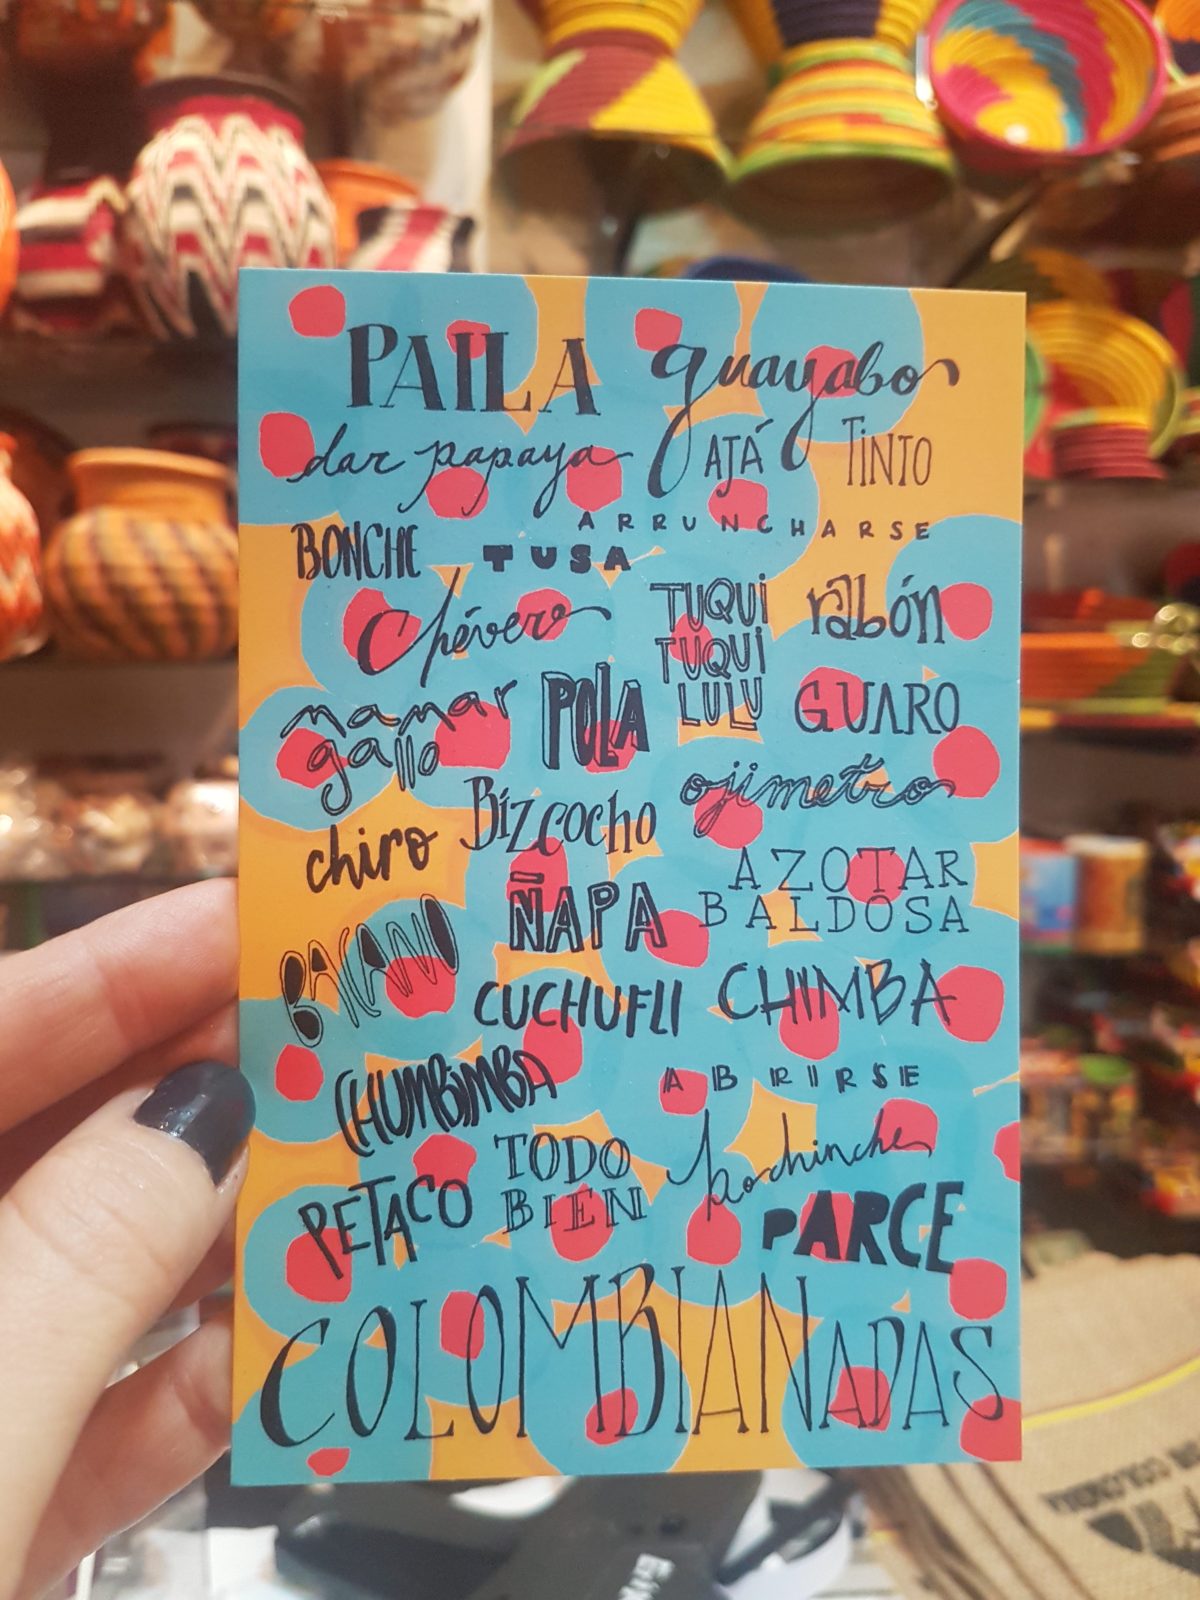 PAILA guayabo
dar papaya AJÁ TINTO
BONCHE TUSA ARRUNCHARSE
Chévere TUQUI TUQUI LULU rabón
mamar gallo POLA GUARO
chiro Bizcocho ojimetro
ÑAPA AZOTAR BALDOSA
BACANO CUCHUFLI CHIMBA
CHUMBIMBA ABRIRSE
PETACO TODO BIEN bochinche
PARCE
COLOMBIANADAS